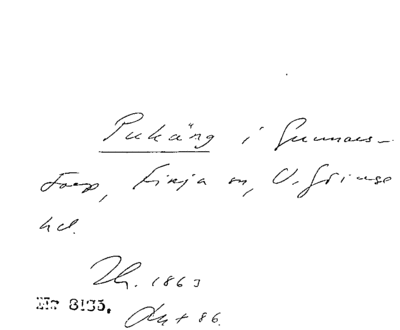 Pukäng i Gunnars-
torp, Finja sn, V. Göinge
hd.
Th. 1863
Nr 8133.
Akt 86.